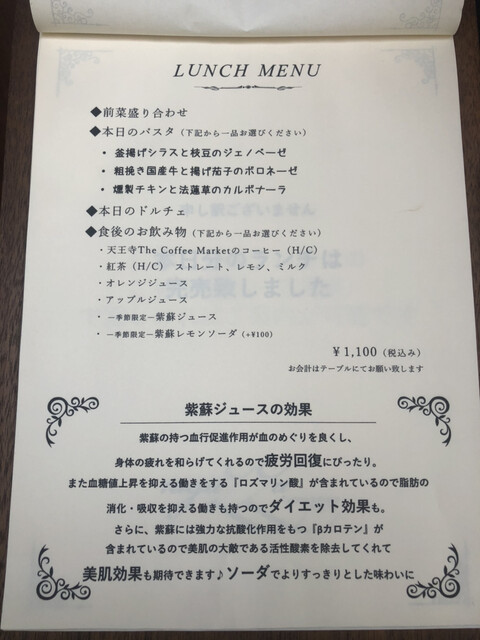 LUNCH MENU
◆前菜盛り合わせ
◆本日のパスタ（下記から一品お選びください）
・ 釜揚げシラスと枝豆のジェノベーゼ
・ 粗挽き国産牛と揚げ茄子のボロネーゼ
・ 燻製チキンと法蓮草のカルボナーラ
◆本日のドルチェ
◆食後のお飲み物（下記から一品お選びください）
・天王寺The Coffee Marketのコーヒー（H/C）
・紅茶（H/C） ストレート、レモン、ミルク
・オレンジジュース
・アップルジュース
・ ―季節限定―紫蘇ジュース
・ ―季節限定―紫蘇レモンソーダ（+¥100）
¥1,100（税込み）
お会計はテーブルにてお願い致します
紫蘇ジュースの効果
紫蘇の持つ血行促進作用が血のめぐりを良くし、
身体の疲れを和らげてくれるので疲労回復にぴったり。
また血糖値上昇を抑える働きをする『ロズマリン酸』が含まれているので脂肪の
消化・吸収を抑える働きも持つのでダイエット効果も。
さらに、紫蘇には強力な抗酸化作用をもつ『βカロテン』が
含まれているので美肌の大敵である活性酸素を除去してくれて
美肌効果も期待できます♪ソーダでよりすっきりとした味わいに
申し訳ございません
ランチは
完売致しました